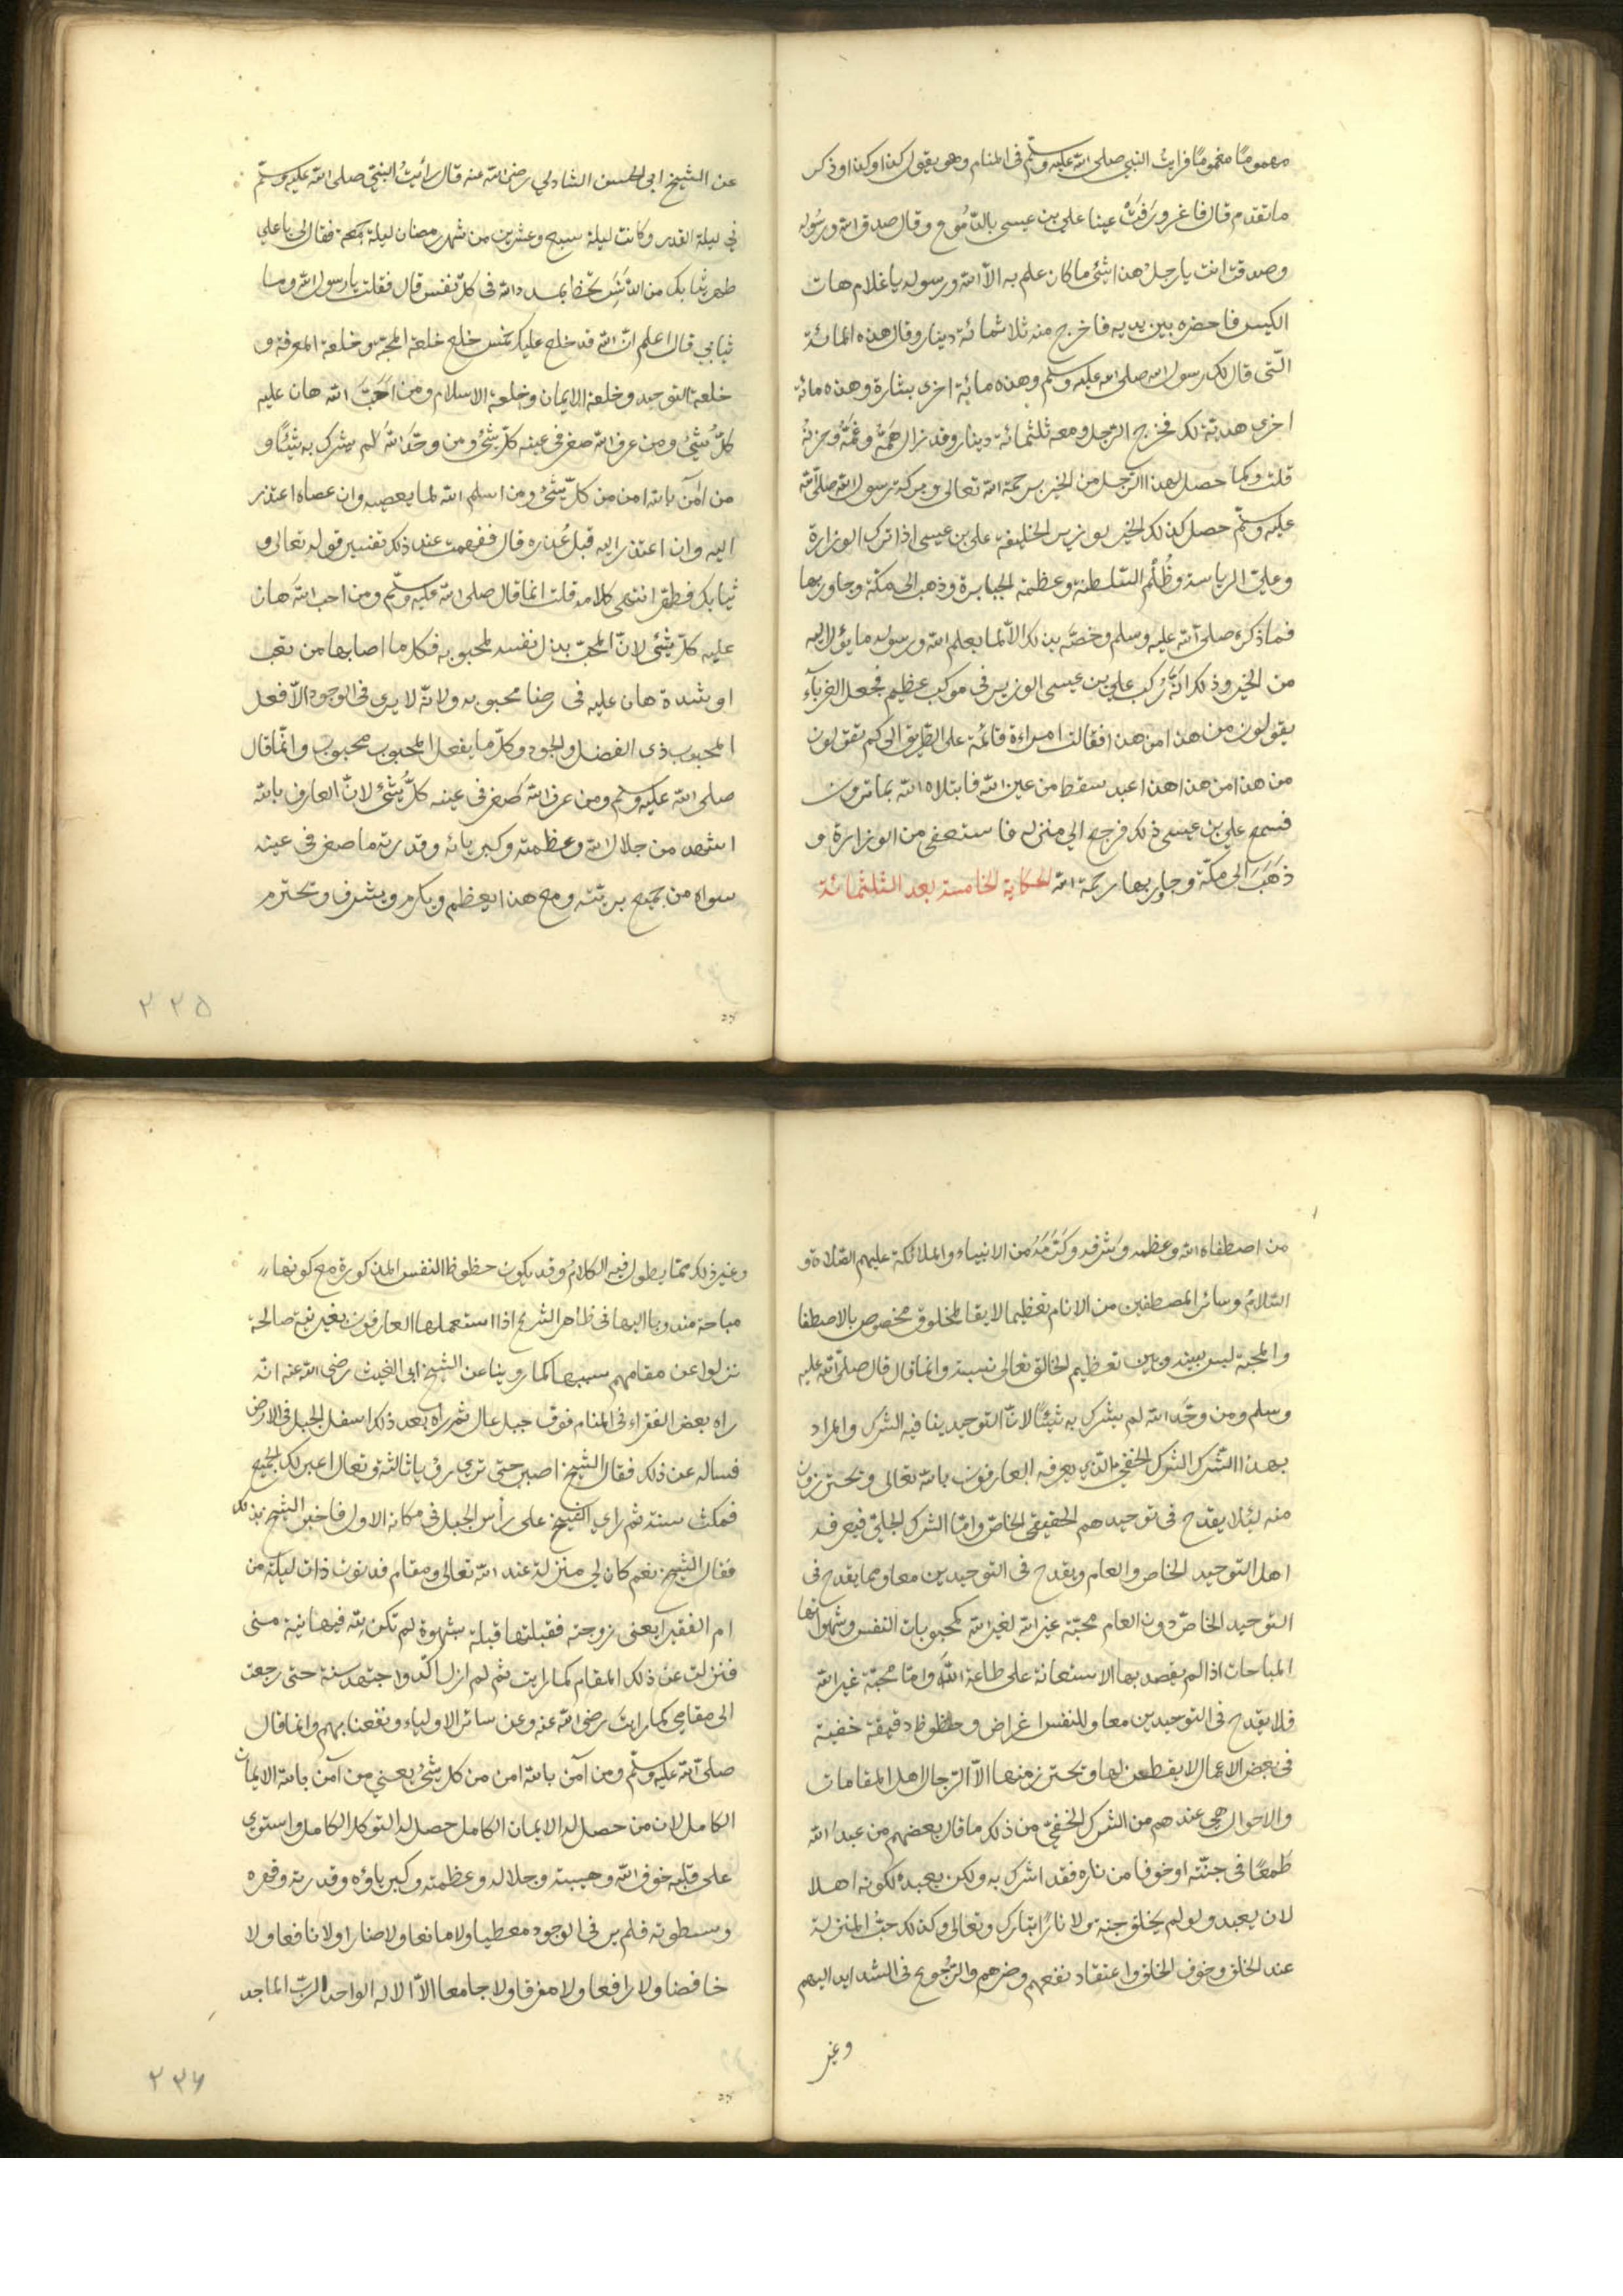 مهموما مغموما فرايت النبي صلى الله عليه وسلم فى المنام وهو يقول كذا وكذا وذكر
ما تقدم قال فاغرورقت عينا على بن عيسى بالدموع وقال صدق الله ورسوله
وصدقت انت يا رجل هذا شئ ما كان علم به الا الله ورسوله يا غلام هات
الكيس فاحضره بين يديه فاخرج منه ثلاثمائة دينار وقال هذه المائة
الّتى قال لك رسول الله صلى الله عليه وسلم وهذه مائة اخرى بشارة وهذه مائة
اخرى هدية لك فخرج الرّجل ومعه ثلثمائة دينار وقد زال همّه وغمّه وحزنه
قلت وكما حصل لهذا الرّجل من الخير برحمة الله تعالى وبركة رسول الله صلى الله
عليه وسلّم حصل كذلك الخير لوزير الخليفة على بن عيسى اذا ترك الوزارة
وعليّ الرياسة وظُلْم السّلطنة وعظمة الجبابرة وذهب الى مكّة وجاور بها
فما ذكره صلى الله عليه وسلم وخصّه بذلك الّا لما يعلم الله ورسوله ما يؤل اليه
من الخير وذلك انّه ركب على بن عيسى الوزير فى موكب عظيم فجعل الغرباء
يقولون من هذا من هذا فقالت امراءة قائمة على الطّريق الى كم تقولون
من هذا من هذا هذا عبد سقط من عين الله فابتلاه الله بما ترون
فسمع على بن عيسى ذلك فرجع الي منزله فاستعفى من الوزارة و
ذهَبَ الى مكّة وجاور بها رحمة الله الحكاية الخامسة بعد الثلثمائة
عن الشيخ ابى الحسن الشاذلي رضى الله عنه قال رأيتُ النبيّ صلى الله عليه وسلّم
في ليلة القدر وكانت ليلة سبع وعشرين من شهر رمضان ليلة جمعة فقال لى يا علي
طهر ثيابك من الدّنَس تحظ بمدد الله فى كلّ نفس قال فقلت يا رسول الله وما
ثيابي قال اعلم انّ الله قد خلع عليك خمس خلع خلعة المحبّة وخلعة المعرفة و
خلعة التوحيد وخلعة الايمان وخلعة الاسلام ومن احَبَّ الله هان عليه
كلّ شئ ومن عرف الله صغر فى عينه كلّ شئ ومن وحّد الله لم يشرك به شيئًا و
من آمن بالله امن من كلّ شئ ومن اسلم الله لما يعصيه وان عصاه اعتذر
اليه وان اعتذر اليه قبل عُذره قال ففهمت عند ذلك تفسير قوله تعالى و
ثيابك فطهر انتهى كلامه قلت انما قال صلى الله عليه وسلّم ومن احب الله هان
عليه كلّ شئى لانّ المحبّ بذل نفسه لمحبوبه فكل ما اصابها من تعب
او شدة هان عليه فى رضا محبوبه ولانّه لا يرى فى الوجود الّا فعل
المحبوب ذى الفضل والجود وكلّ ما يفعل المحبوب محبوب وانّما قال
صلى الله عليه وسلم ومن عرف الله صَغر فى عينه كلّ شئ لانّ العارف بالله
اشهد من جلال الله وعظمته وكبريائه وقدرته ما صغر فى عينه
سواه من جميع بريّته ومع هذا يعظم ويكرم ويشرف ويحترم
٢٣٥
من اصطفاه الله وعظمه وشرفه وكرّمه من الانبياء والملائكة عليهم الصّلاة و
السّلامُ وسائر المصطفين من الانام تعظيما لايقا لمخلوق مخصوص بالاصطفا
والمحبة ليس بينه وبين تعظيم الخالق تعالى نسبة وانما قال قال صلّى الله عليه
وسلم ومن وحّد الله لم يشرك به شيئًا لانّ التوحيد ينافيه الشرك والمراد
بهذا الشّرك الشرك الخفيّ الذى يعرفه العارفون بالله تعالى ويحترزون
منه لئلا يقدح فى توحيدهم الحقيقى الخاصّ وامّا الشرك الجليّ فيعرفه
اهل التوحيد الخاص والعام ويقدح فى التوحيدين معا ومما يقدح فى
التوحيد الخاصّ دون العام محبّة غير الله لغير الله كمحبوبات النفس وشهواتها
المباحات اذا لم يقصد بها الاستعانة على طاعة اللّه وامّا محبّة غير الله
فلا يقدح فى التوحيدين معا وللنفس اغراض وحظوظ دقيقة خفية
فى بعض الاعمال لا يفطن لها ويحترز منها الّا الرّجال اهل المقامات
والاحوال هى عندهم من الشرك الخفىّ من ذلك ما قال بعضهم من عبد الله
طَمعًا فى جنّته او خوفا من ناره فقد اشرك به ولكن يعبده لكونه اهلا
لان يعبد ولو لم يخلق جنة ولا نارًا تبارك وتعالى وكذلك حبّ المنزلة
عند الخلق وخوف الخلق واعتقاد نفعهم وضرهم والرّجوع فى الشدايد اليهم
وغير
وغير ذلك ممّا يطول فيه الكلامُ وقد يكون حظوظ النفس المذكورة مع كونها
مباحة مندوبا اليها فى ظاهر الشرع اذا استعملها العارفون بغير نية صالحة
نزلوا عن مقامهم بسببها كما روينا عن الشيخ ابى الغيث رضى الله عنه انّه
راه بعض الفقراء فى المنام فوق جبل عال ثم راه بعد ذلك اسفل الجبل فى الارض
فساله عن ذلك فقال الشيخ اصبر حتى ترى رؤيا ثالثة وتعال اعبر لك الجميع
فمكث سنة ثم راى الشيخ على رأس الجبل فى مكانه الاول فاخبر الشيخ بذلك
فقال الشيخ نعم كان لي منزلة عند الله تعالى ومقام فدنوت ذات ليلة من
ام الفقرا يعنى زوجته فقبلتها قبلة بشهوة لم تكن لله فيها نية منى
فنزلت عن ذلك المقام كما رايت ثم لم ازل اكدّ واجتهد سنة حتى رجعت
الى مقامى كما رايت رضى الله عنه وعن سائر الاولياء ونفعنا بهم وانما قال
صلّى الله عليه وسلّم ومن آمن بالله امن من كل شئ يعني من آمن بالله الايمان
الكامل لان من حصل له الايمان الكامل حصل له التوكل الكامل واستولى
على قلبه خوف الله وهيبته وجلاله وعظمته وكبرياؤه وقدرته وقهره
وسطوته فلم ير فى الوجود معطيا ولا مانعا ولا ضارا ولا نافعا ولا
خافضا ولا رافعا ولا مفرقا ولا جامعا الّا الاله الواحد الربّ الماجد
٢٣٦